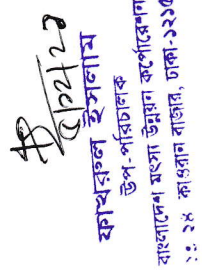 ৫/১২/২১
ফাখরুল ইসলাম
উপ-পরিচালক
বাংলাদেশ মৎস্য উন্নয়ন কর্পোরেশন
২৪ কাওরান বাজার, ঢাকা-১২১৫